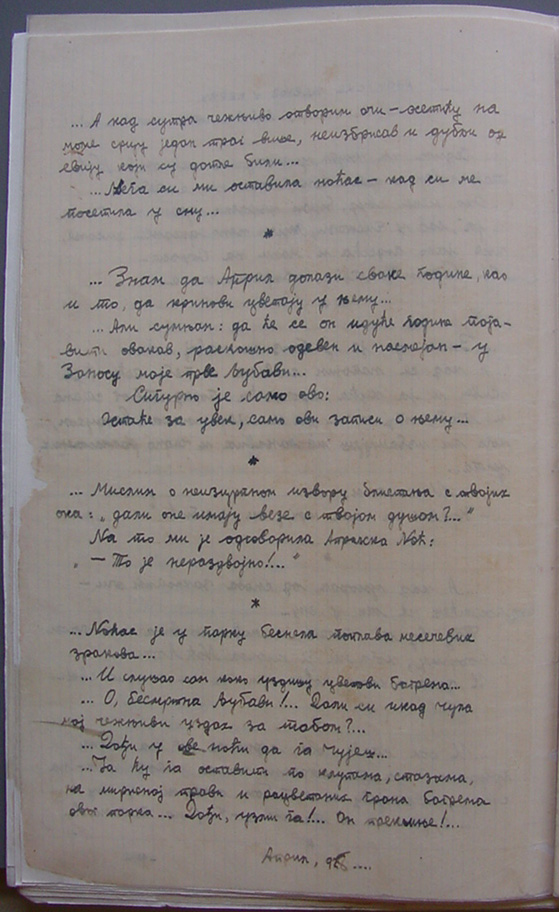 ... А кад сутра чежњиво отворим очи – осетићу на
може срцу један траг више, неизбрисав и дубљи од
свију који су дотле били...
... Њега си ми оставила ноћас – кад си ме
посетила у сну...
*
... Знам да Април долази сваке године, као
и то, да кринови цветају у њему...
... Али сумњам: да ће се он идуће године поја-
вити овакав, раскошно одевен и насмејан – у
Заносу моје прве Љубави...
Сигурно је само ово:
Остаће за увек, само ови записи о њему...
*
... Мислим о неизцрпном извору блистања с твојих
ока: „дали оне имају везе с твојом душом?...“
На то ми је одговорила Априлска Ноћ:
„– То је нераздвојно!...“
*
... Ноћас је у парку беснела поплава месечевих
зракова...
... И слушао сам како уздишу цветови багрема...
... О, бесмртна Љубави!... Дали си икад чула
мој чежњиви уздах за тобом?...
... Дођи у ове ноћи да га чујеш...
... Ја ћу га оставити по клупама, стазама,
на мирисној трави и расцветаних грана багрема
овог парка... Дођи, узми га!... Он преклиње!...
Април,